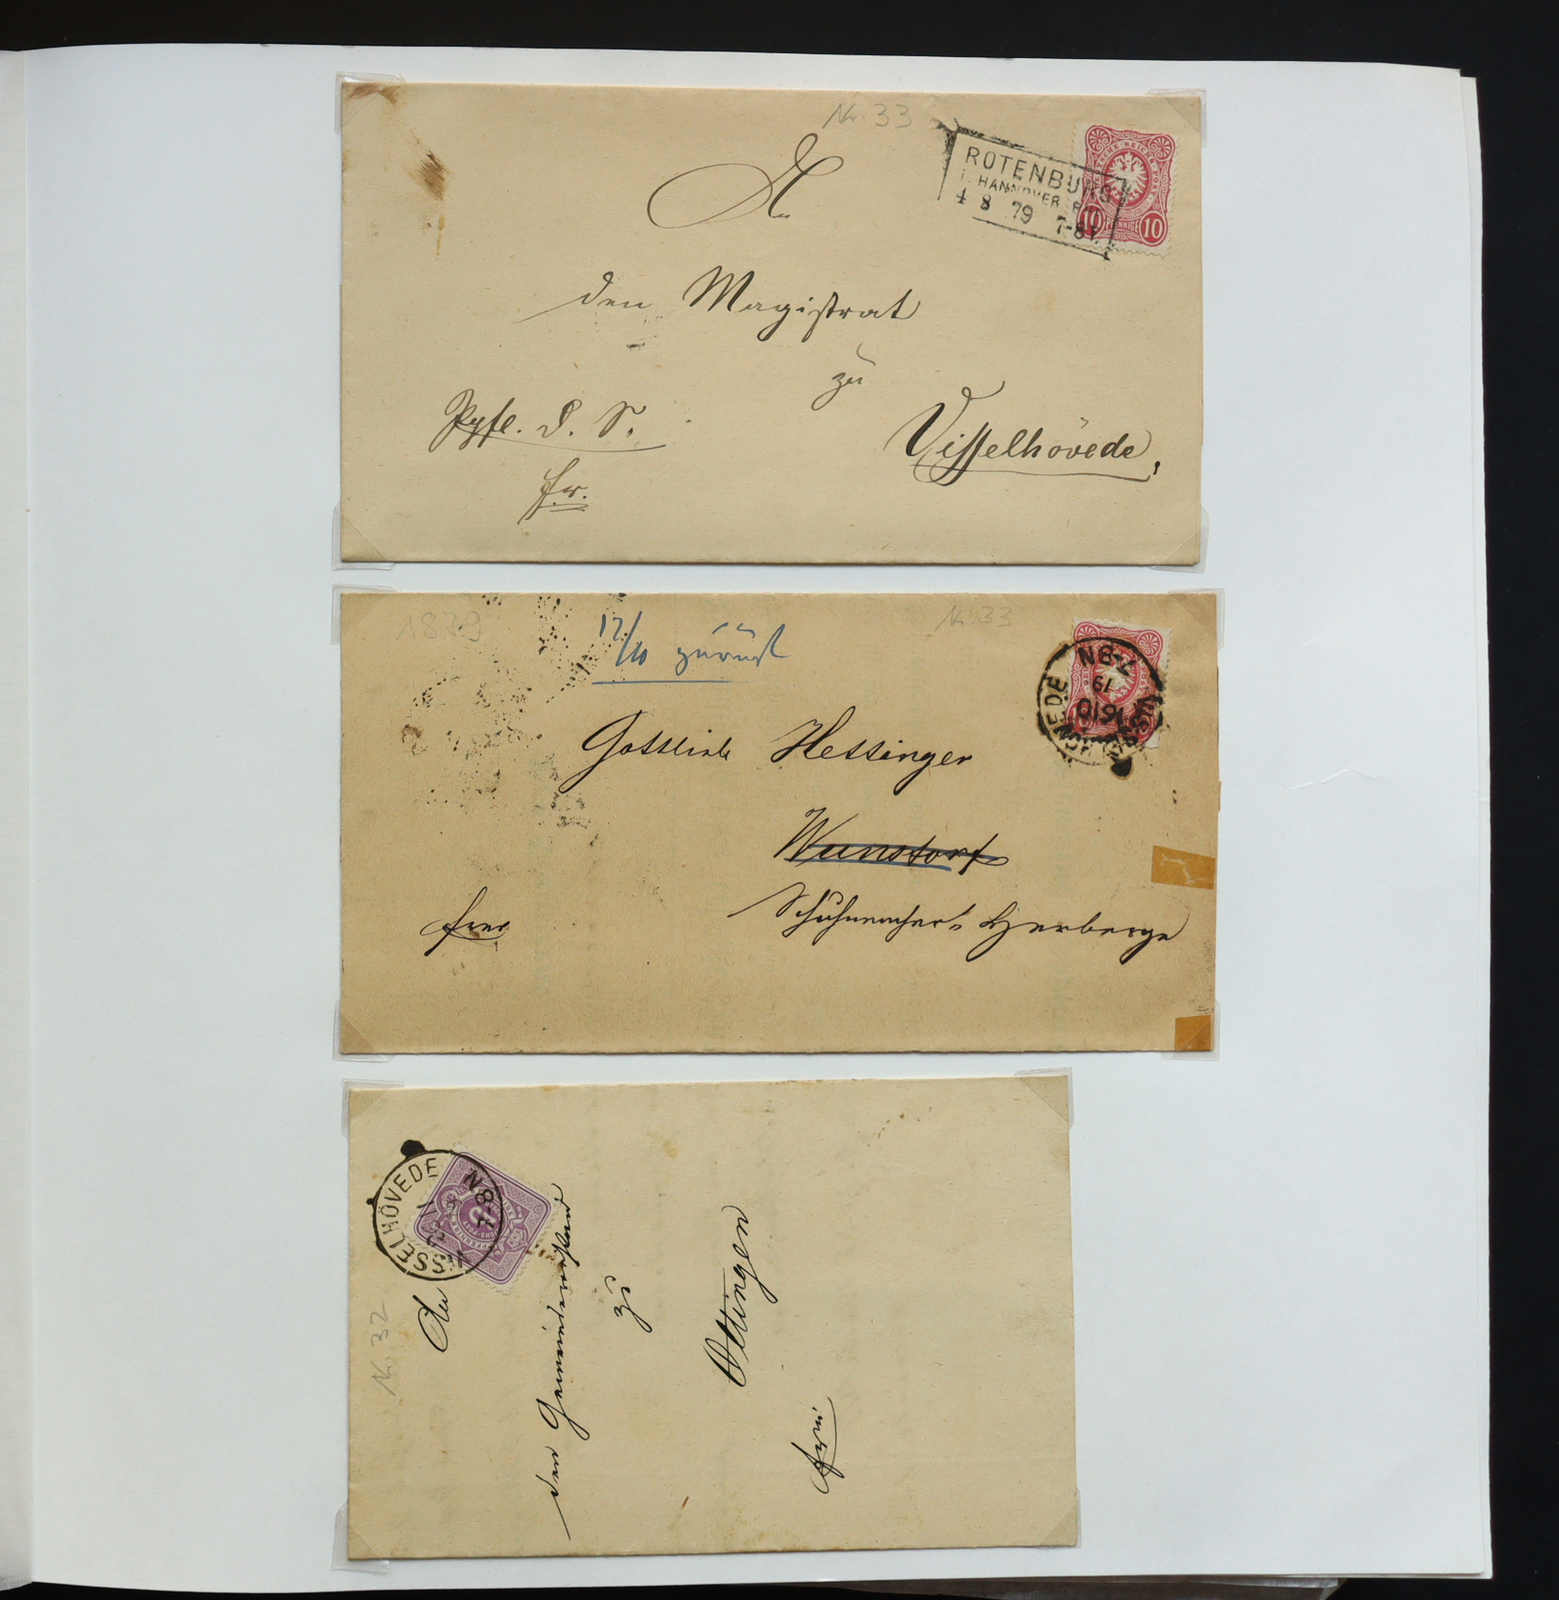 Nr. 33
ROTENBURG
HANNOVER
4 8 79 7-8V.
10 10
An
den Magistrat
zu
Visselhövede,
fr.
1879
17/10 zurück
Nr. 33
7-8N
VISSELHÖVEDE
Gottlieb Hettinger
Wunstorf
Schuhmacher Herberge
frei
VISSELHÖVEDE
7-8N
Nr. 32
An
den Gemeindevorstand
zu
Ottingen
frei